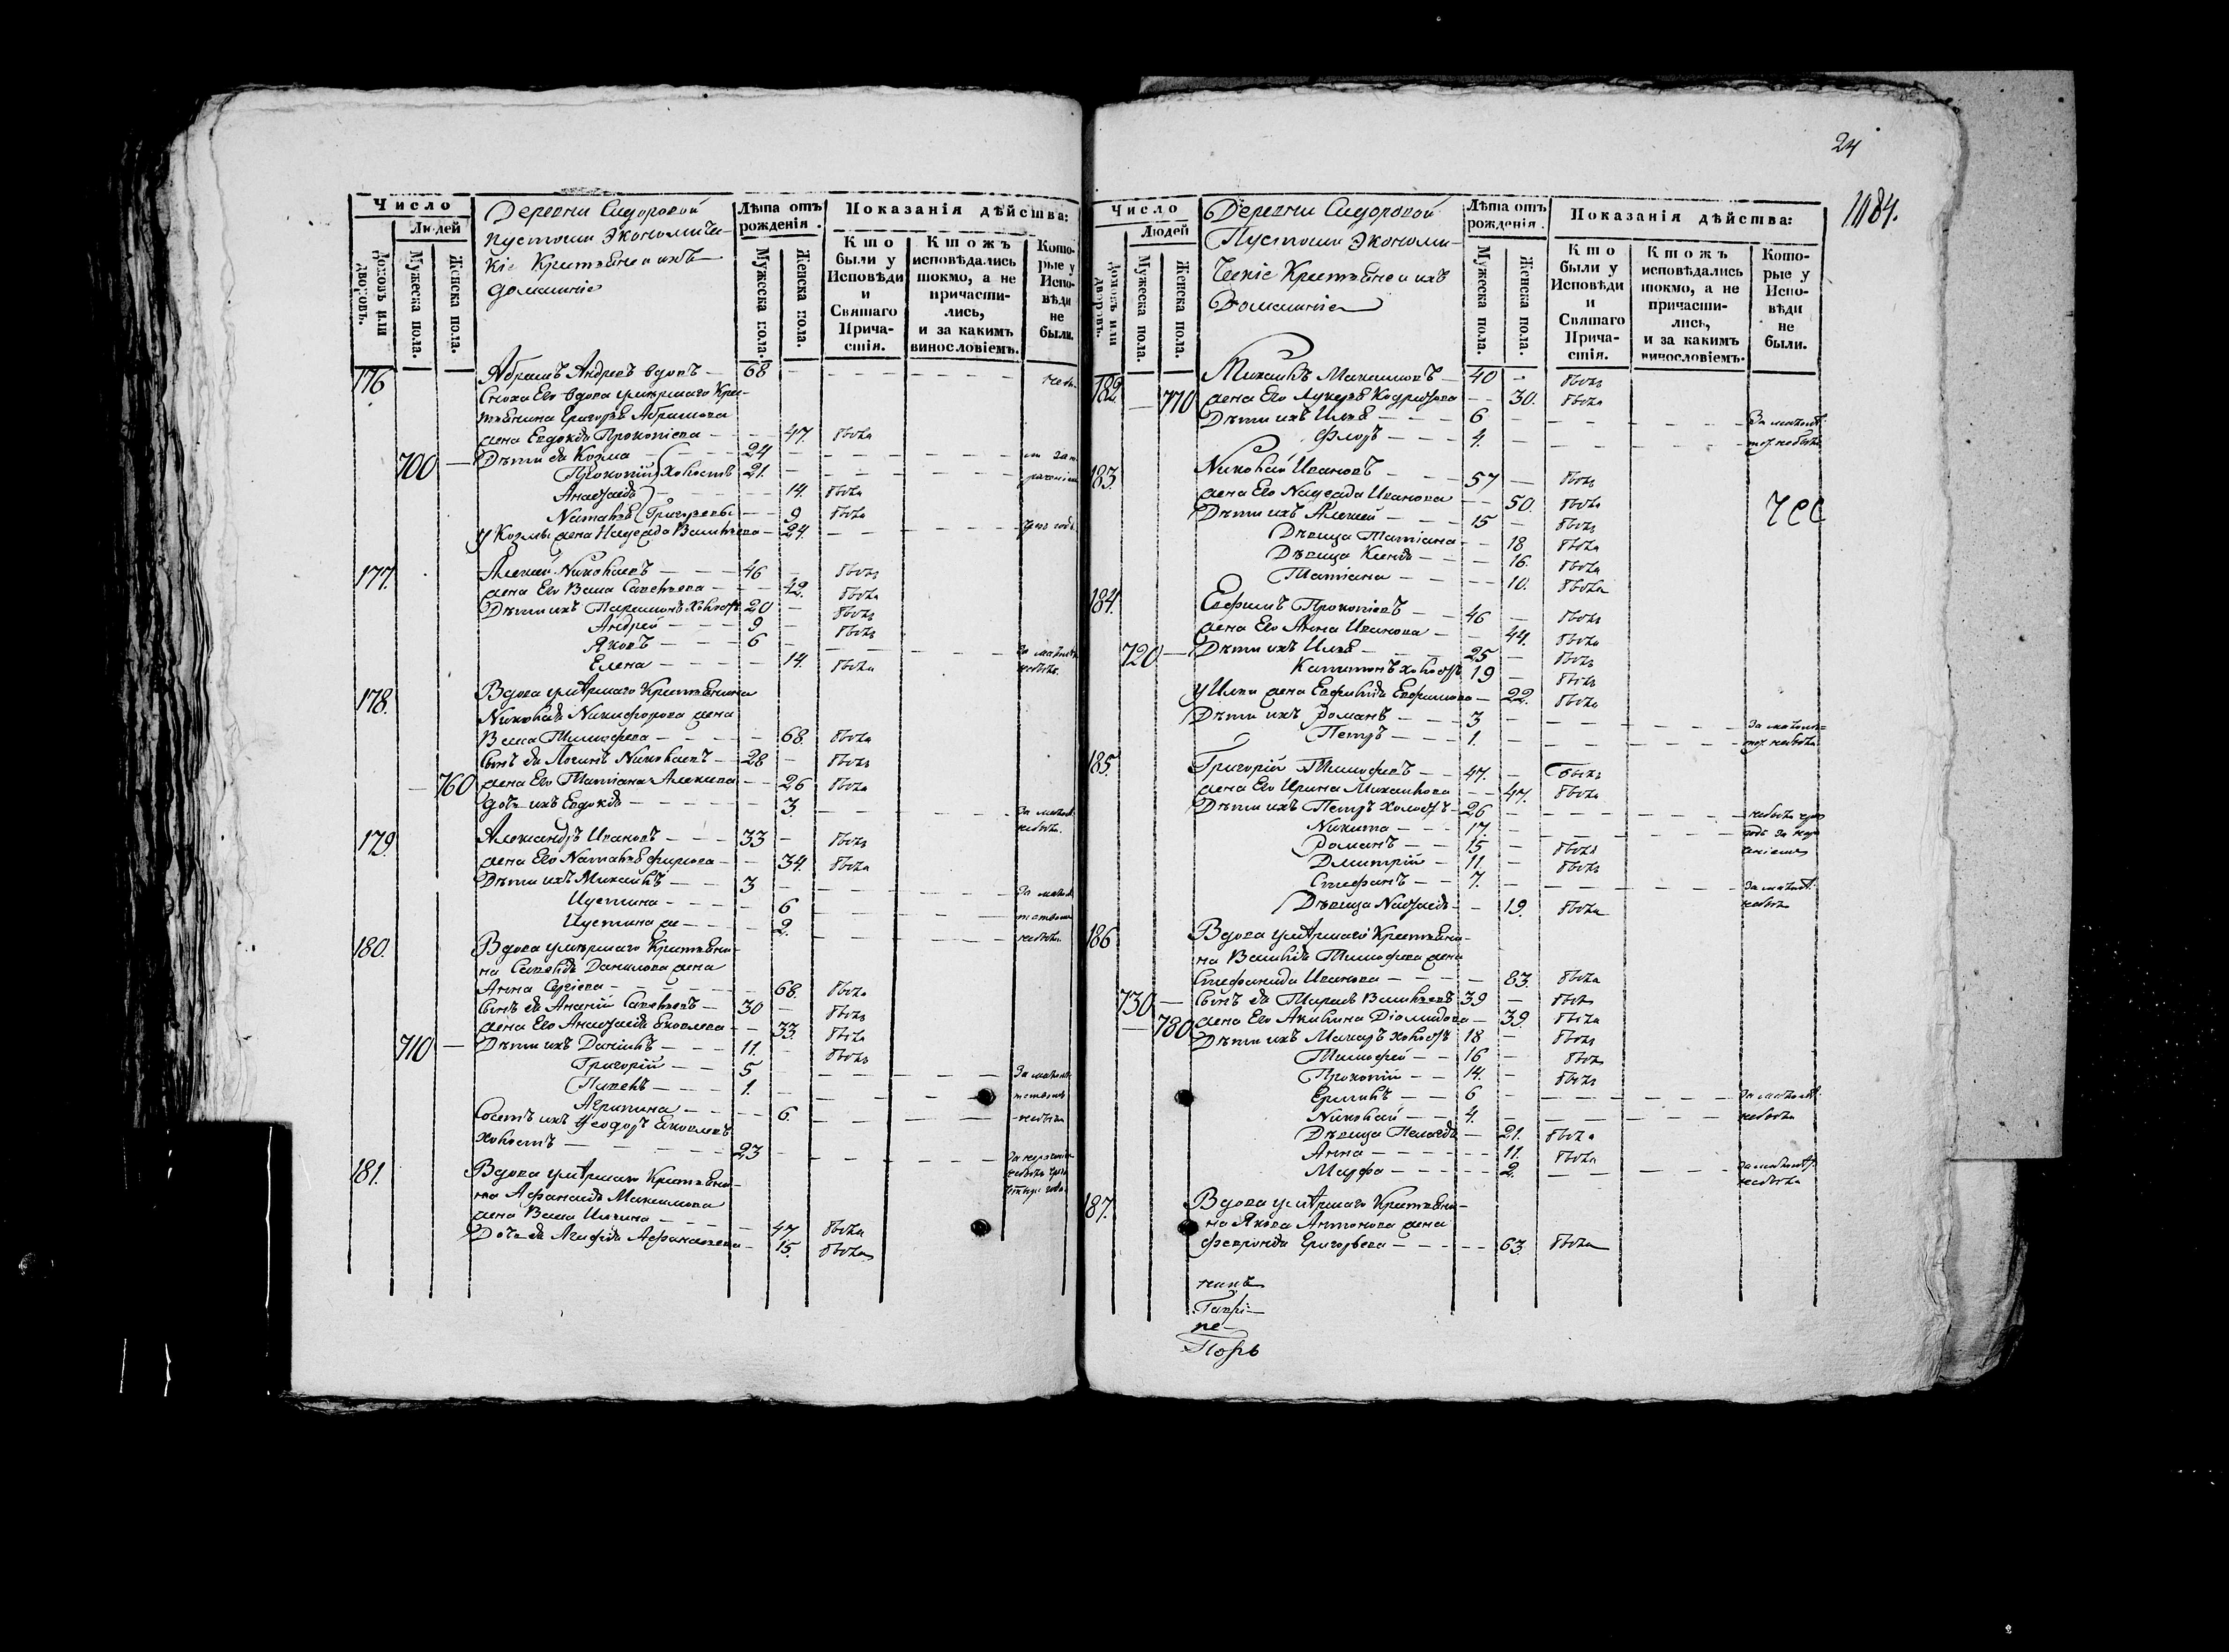 24
1184.
Число
Людей
Домовъ или дворовъ.
Мужеска пола.
Женска пола.
Деревни Сидоровой
пустоши Экономиче-
кіе Крестьяне и ихъ
домашніе
Лѣта отъ рожденія.
Мужеска пола.
Женска пола.
Показанія дѣйства:
Кто были у Исповѣди и Святаго Прича-стія.
Ктожъ исповѣдались токмо, а не причасти-лись, и за какимъ винословіемъ.
Кото-рые у Испо-вѣди не были.
176 Абрамъ Андреевъ вдовъ — 68
Сноха Его вдова умершаго Кре-
стьянина Григорья Абрамова
жена Евдокія Прокопіева — 47. была
700 — Дѣти ея Козма — 24
Прокопій холостъ 21.
Анастасія — 14. была
Наталья Григорьевы — 9 была
у Козмы жена Надежда Васильева — 24.
177. Алексей Николаевъ — 46 былъ
жена Его Васса Савельева — 42. была
Дѣти ихъ Парамонъ холостъ 20 былъ
Андрей — 9 былъ
Яковъ — 6 За малолѣт
Елена — 14. была
178. Вдова умершаго Крестьянина
Николая Никифорова жена
Васса Тимофеева — 68. была
Сынъ ея Логинъ Николаевъ — 28 былъ
760 жена Его Татіана Алексеева — 26 была
дочь ихъ Евдокія — 3. За малолѣт
небыла.
179. Александръ Ивановъ — 33 былъ
жена Его Наталья Фирсова — 34. была
Дѣти ихъ Михаилъ — 3 За малолѣ
Иустина — 6 тством
Иустина же — 2. небыли.
180. Вдова умершаго Крестьяни-
на Савелія Данилова жена
Анна Сергіева — 68. была
Сынъ ея Ананій Савельевъ — 30 былъ
жена Его Анастасія Яковлева — 33. была
710 — Дѣти ихъ Даніилъ — 11. былъ
Григорій — 5 За малолѣ
Павелъ — 1. тствомъ
Агрипина — 6. небыли
Ѳеодоръ Яковлевъ
холостъ — 23
181. Вдова умершаго Крестьяни-
на Афанасія Максимова
жена Васса Ильина — 47 была
Дочь ея Агафія Афанасьева — 15. была
Число
Людей
Домовъ или дворовъ.
Мужеска пола.
Женска пола.
Деревни Сидоровой
Пустоши Экономи-
ческіе Крестьяне и ихъ
Домашніе
Лѣта отъ рожденія.
Мужеска пола.
Женска пола.
Показанія дѣйства:
Кто были у Исповѣди и Святаго Прича-стія.
Ктожъ исповѣдались токмо, а не причасти-лись, и за какимъ винословіемъ.
Кото-рые у Испо-вѣди не были.
182. Михаилъ Максимовъ — 40 былъ
770 жена Его Лукерья Кодратова — 30. была
Дѣти ихъ Илья — 6 За малолѣт
Флоръ — 4. небыли
183. Николай Ивановъ — 57 былъ
жена Его Надежда Иванова — 50. была
Дѣти ихъ Алексей — 15 былъ
Дѣвица Татіана — 18 была
Дѣвица Ксенія — 16. была
Татіана — 10. была
184. Евфимъ Прокопіевъ — 46 былъ
жена Его Анна Иванова — 44. была
720 — Дѣти ихъ Илья — 25 былъ
Капитонъ холостъ 19 былъ
у Ильи жена Евфимія Евфимова — 22. была
Дѣти ихъ Романъ — 3 За малолѣ-
Петръ — 1. небыли
185. Григорій Тимофеевъ — 47. былъ
жена Его Ирина Михайлова — 47. была
Дѣти ихъ Петръ холостъ — 26
Никита — 17.
Романъ — 15 былъ
Дмитрій — 11. былъ
Стефанъ — 7. За малолѣт.
Дѣвица — 19. была
186 Вдова умершаго Крестьяни-
на Василія Тимофеева жена
Стефанида Иванова — 83. была
730 — Сынъ ея Тарасъ Васильевъ 39 былъ
780 жена Его Акилина Діомидова — 39. была
Дѣти ихъ Макаръ холостъ 18 былъ
Тимофей — 16 былъ
Прокопій — 14. былъ
Ермилъ — 6 За малолѣт
Николай — 4. небыли
Дѣвица Пелагія — 21. была
Анна — 11. была
Марфа — 2. За малолѣт.
небыла
187. Вдова умершаго Крестьяни-
на Якова Антонова жена
Февронія Григорьева — 63. была